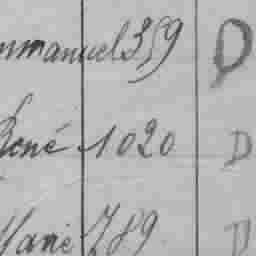 mmanuel 359 D
René 1020 D
Marie 789 D